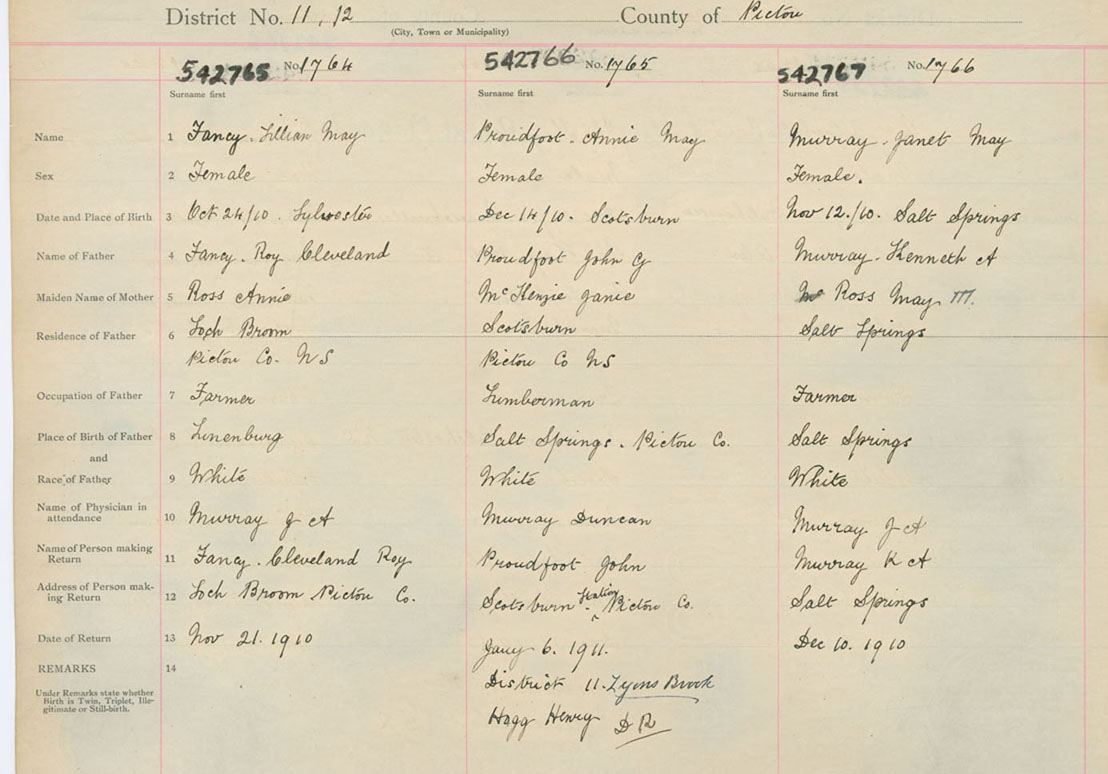 District No. 11, 12 County of Pictou
(City, Town or Municipality)
542765 No. 1764 542766 No. 1765 542767 No. 1766
Surname first Surname first Surname first
Name 1 Fancy. Lillian May Proudfoot. Annie May Murray. Janet May
Sex 2 Female Female Female.
Date and Place of Birth 3 Oct 24/10. Sylvester Dec 14/10. Scotsburn Nov 12./10. Salt Springs
Name of Father 4 Fancy. Roy Cleveland Proudfoot John G Murray. Kenneth A
Maiden Name of Mother 5 Ross Annie McKenzie Janie Ross May M.
Residence of Father 6 Loch Broom Scotsburn Salt Springs
Pictou Co. NS Pictou Co NS
Occupation of Father 7 Farmer Lumberman Farmer
Place of Birth of Father 8 Lunenburg Salt Springs. Pictou Co. Salt Springs
and
Race of Father 9 White White White
Name of Physician in
attendance 10 Murray J A Murray Duncan Murray J A
Name of Person making
Return 11 Fancy. Cleveland Roy Proudfoot John Murray K A
Address of Person mak-
ing Return 12 Loch Broom Pictou Co. Scotsburn Station Pictou Co. Salt Springs
Date of Return 13 Nov 21. 1910 Jany 6. 1911. Dec 10. 1910
REMARKS 14 District 11. Lyons Brook
Under Remarks state whether
Birth is Twin, Triplet, Ille-
gitimate or Still-birth.
Hogg Henry D R